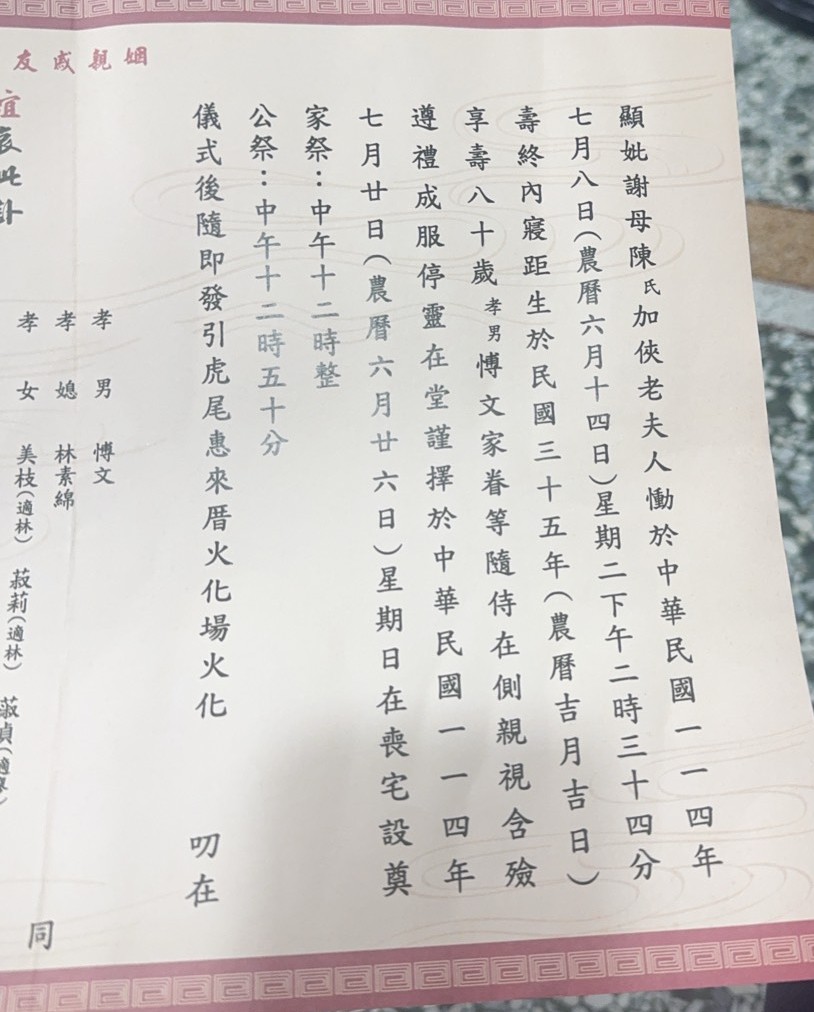 顯妣謝母陳氏加俠老夫人慟於中華民國一一四年
七月八日(農曆六月十四日)星期二下午二時三十四分
壽終內寢距生於民國三十五年(農曆吉月吉日)
享壽八十歲孝男博文家眷等隨侍在側親視含殮
遵禮成服停靈在堂謹擇於中華民國一一四年
七月廿日(農曆六月廿六日)星期日在喪宅設奠
家祭：中午十二時整
公祭：中午十二時五十分
儀式後隨即發引虎尾惠來厝火化場火化
叨在
姻親戚友
誼哀此訃
孝男 博文
孝媳 林素綿
孝女 美枝(適林) 菽莉(適林) 菽貞
同